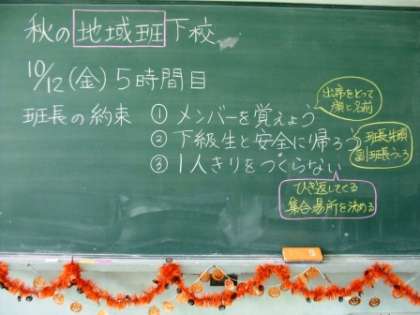 秋の地域班下校
10/12(金)5時間目
班長の約束 ①メンバーを覚えよう
出席をとって
顔と名前
②下級生と安全に帰ろう
班長先頭
副班長うしろ
③1人きりをつくらない
ひき返してくる
集合場所を決める